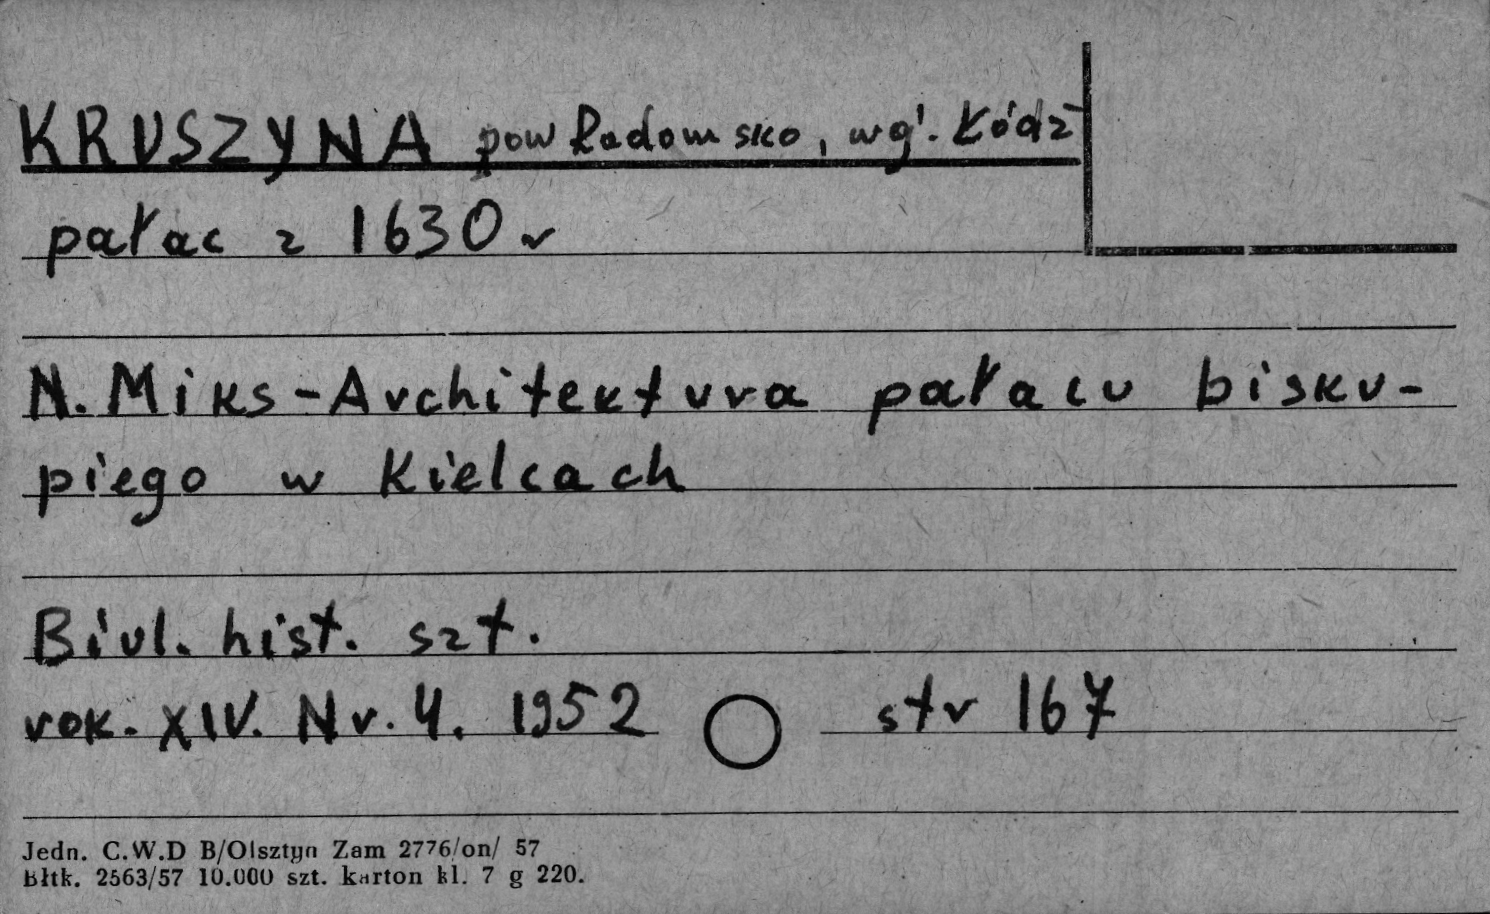 KRUSZYNA pow Radomsko, wg. Łódź
pałac z 1630 r
N. Miks - Architektura pałacu bisku-
piego w Kielcach
Biul. hist. szt.
rok. XIV. Nr. 4. 1952 str 167
Jedn. C.W.D B/Olsztyn Zam 2776/on/ 57
Błtk. 2563/57 10.000 szt. karton kl. 7 g 220.